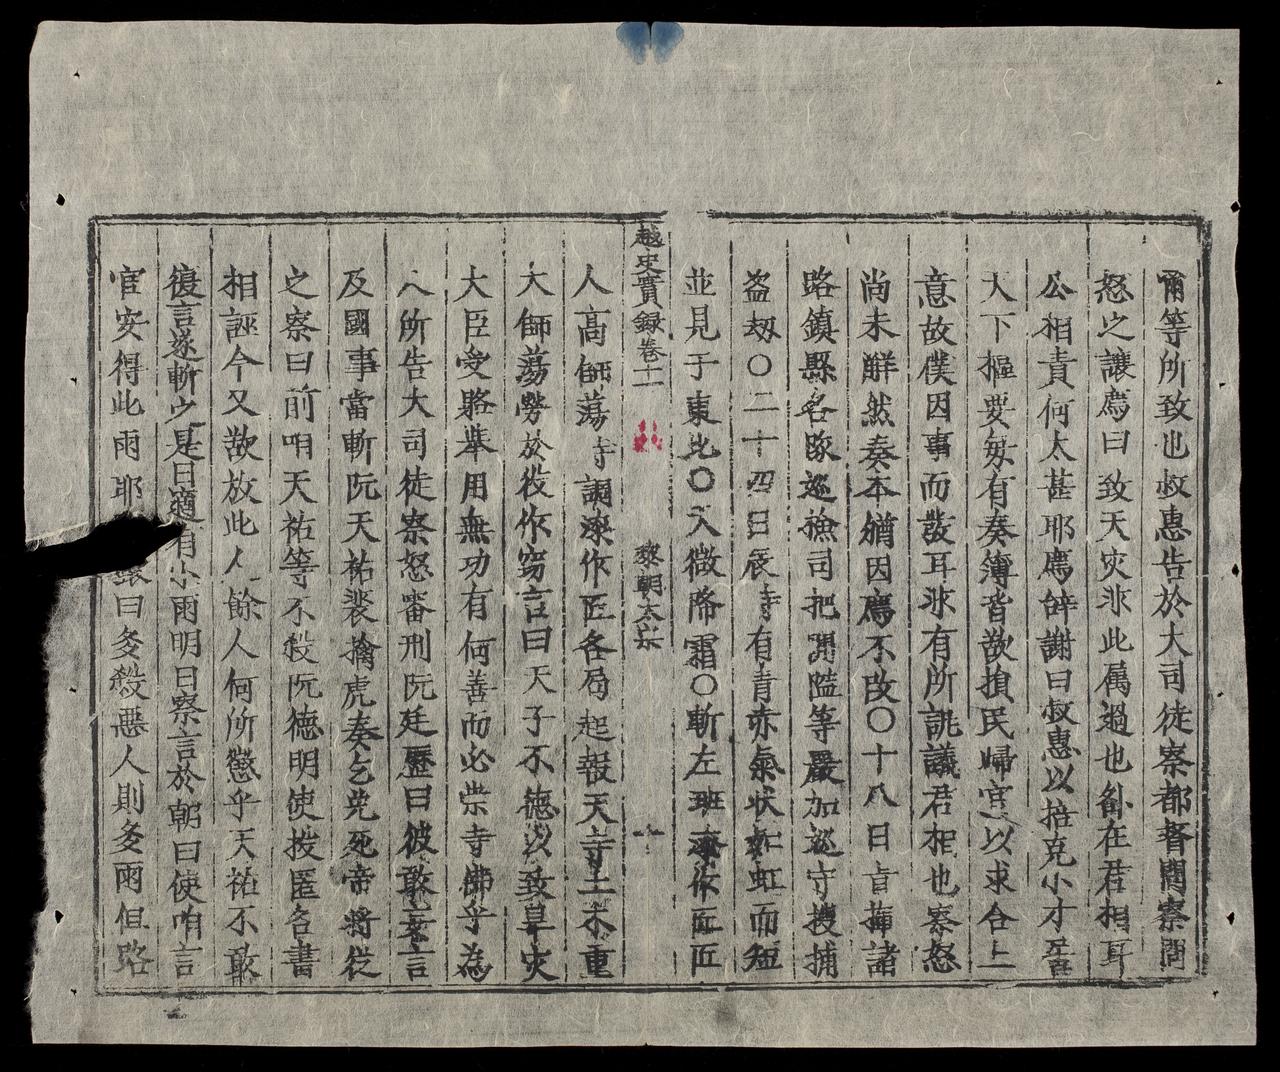 爾等所致也叔惠告於大司徒察都督問察問
怒之讓廌曰致天灾非此属過也咎在君相耳
公相責何太甚耶廌辞謝曰叔惠以掊克小才
天下樞要每有奏簿皆欲損民婦官以求合上
意故僕因事而發耳非有所誹議君相也察怒
尚未解然奏本猶因廌不改〇十八日旨揮諸
路鎮縣各隊巡撿司把關隘等嚴加巡守搜捕
盗刼〇二十四日辰時有青赤氣状如虹而短
並見于東北〇天微降霜〇斬左班漆作匠
越史實録卷十一 黎朝太宗
人高師蕩時調漆作匠各局起報天寺土木重
大師蕩勞於役作窃言曰天子不德以致旱灾
大臣受賂舉用無功有何善而必崇寺佛乎為
人所告大司徒察怒審刑阮廷歷曰彼敢妄言
及國事當斬阮天祐裴擒虎奏乞免死帝将従
之察曰前咱天祐等不殺阮德明使投匿名書
相誣今又欲放此人餘人何所懲乎天祐不敢
復言遂斬之是日適有小雨明日察言於朝曰使咱言
官安得此雨耶 曰多殺惡人則多雨但路